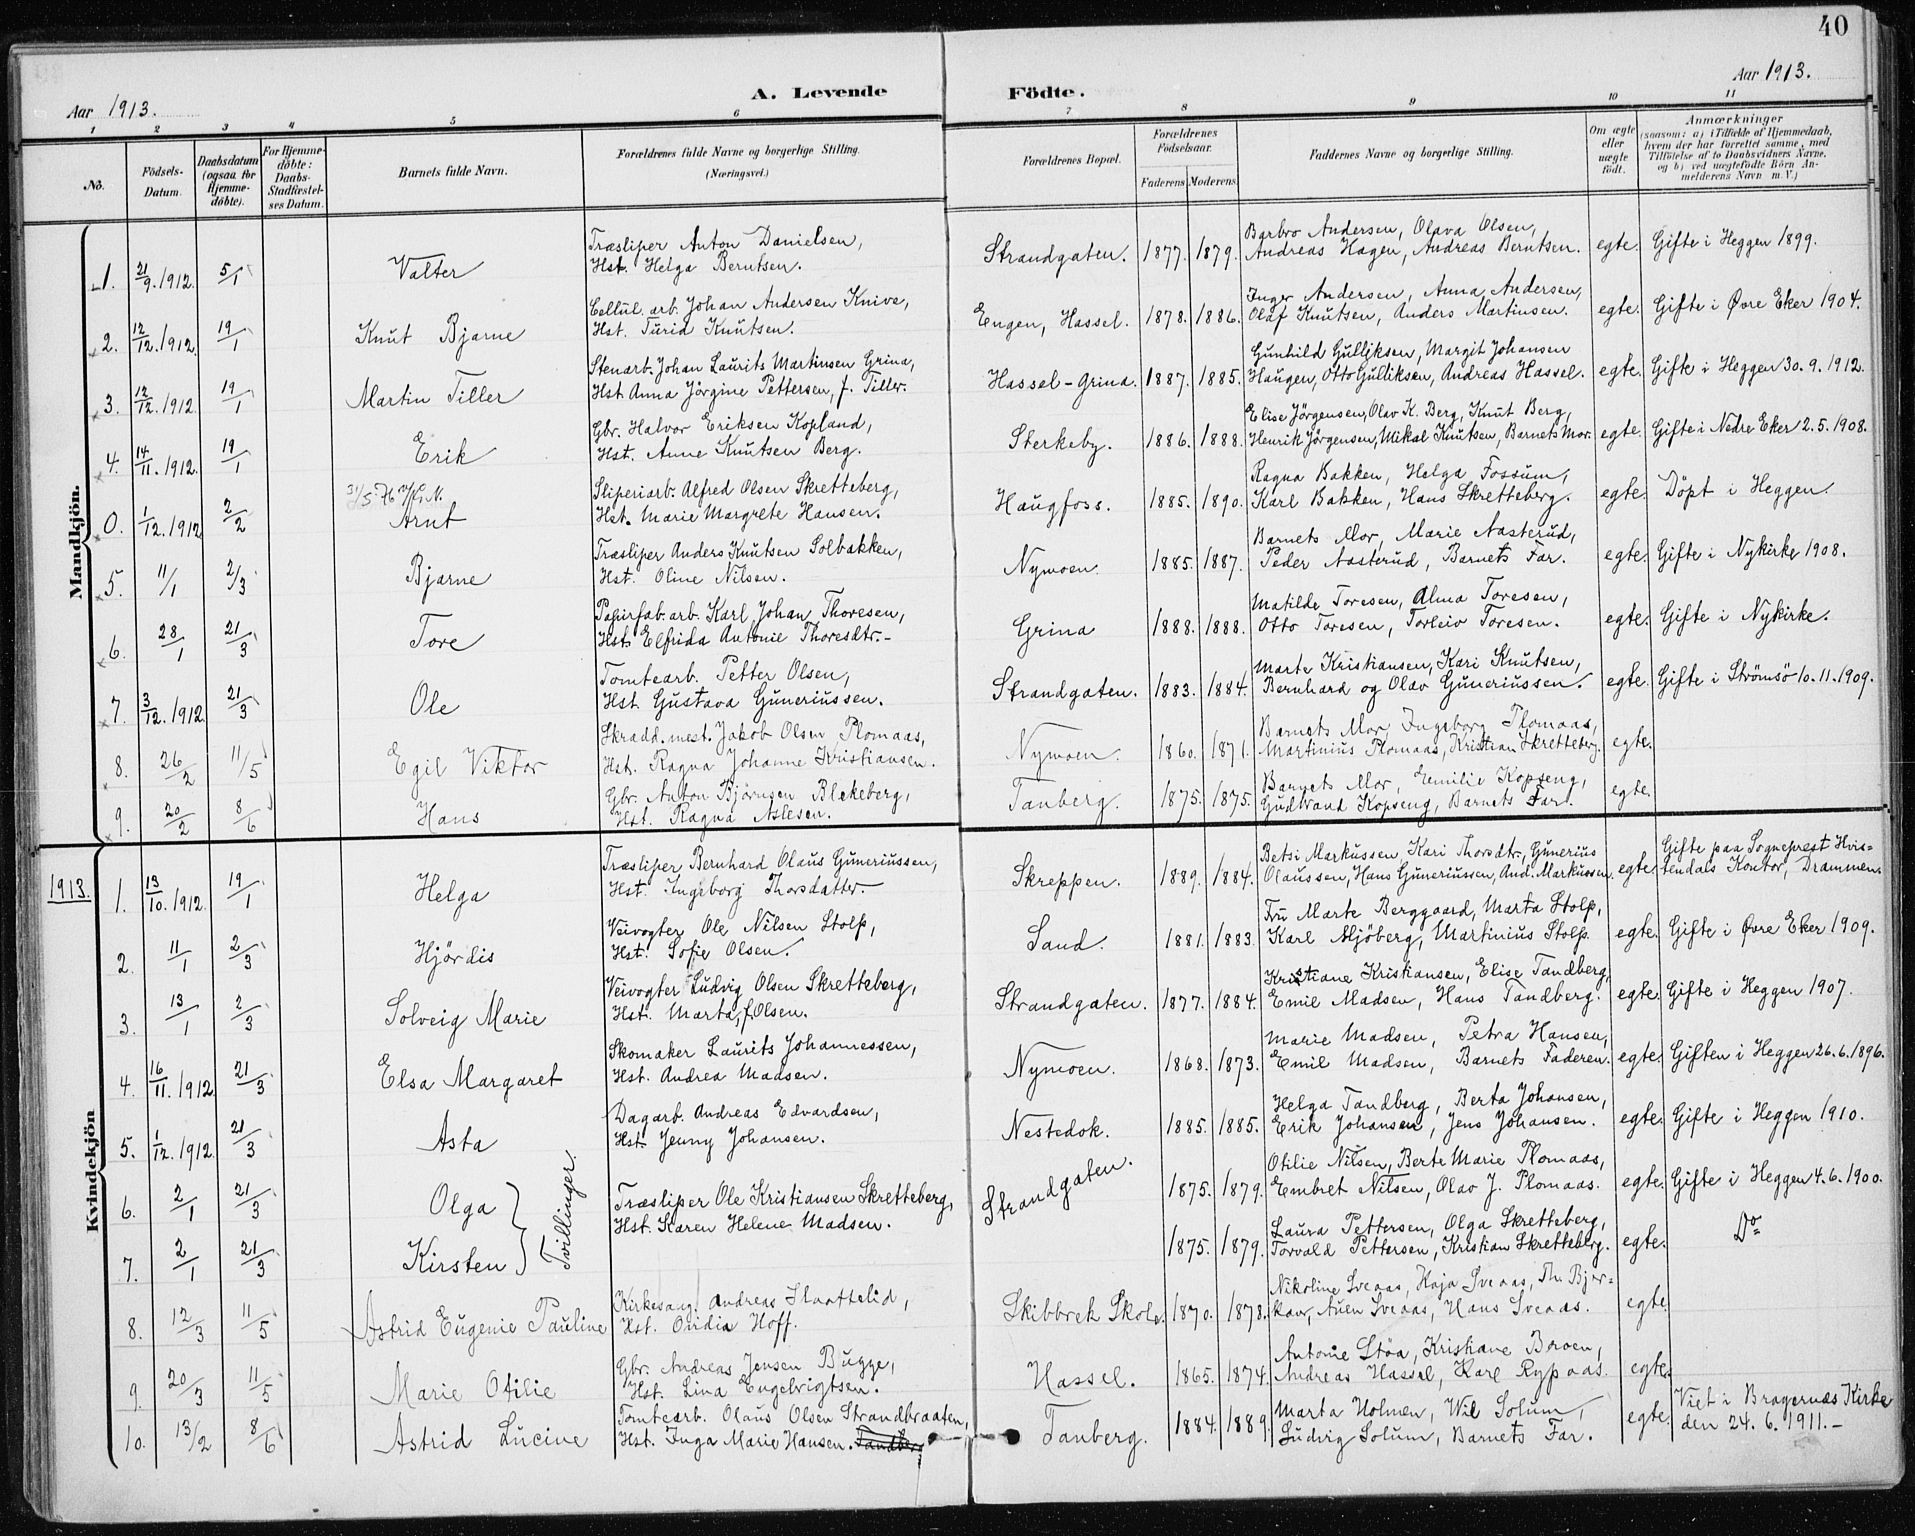 40
Aar 1913.
A. Levende Födte.
Aar 1913.
1 2 3 4 5 6 7 8 9 10 11
No.
Födsels-Datum.
Daabsdatum (ogsaa for Hjemme-döbte).
For Hjemme-döbte: Daabs-Stadfæstel-ses Datum.
Barnets fulde Navn.
Forældrenes fulde Navne og borgerlige Stilling. (Næringsvei.)
Forældrenes Bopæl.
Forældrenes Födselsaar.
Faderens. Moderens.
Faddernes Navne og borgerlige Stilling.
Om ægte eller uægte födt.
Anmærkninger
(saasom: a) i Tilfælde af Hjemmedaab, hvem der har forrettet samme, med Tilföielse af to Daabsvidners Navne, og b) ved uægtefödte Börn An-melderens Navn m. V.)
Mandkjön.
1. 21/9. 1912. 5/1 Valter
Træsliper Anton Danielsen,
Hst. Helga Berntsen.
Strandgaten. 1877. 1879.
Barbro Andersen, Olava Olsen,
Andreas Hagen, Andreas Berntsen.
egte. Gifte i Heggen 1899.
2. 12/12. 1912. 19/1 Knut Bjarne
Cellul. arb. Johan Andersen Knive,
Hst. Turid Knutsen.
Engen, Hassel. 1878. 1886.
Inger Andersen, Anna Andersen,
Olaf Knutsen, Anders Martinsen.
egte. Gifte i Øvre Eker 1904.
3. 12/12. 1912. 19/1 Martin Tiller
Stenarb. Johan Laurits Martinsen Grina,
Hst. Anna Jörgine Pettersen, f. Tiller.
Hassel-Grina. 1887. 1885.
Gunhild Gulliksen, Margit Johansen
Haugen, Otto Gulliksen, Andreas Hassel.
egte. Gifte i Heggen 30. 9. 1912.
4. 14/11. 1912. 19/1 Erik
Gbr. Halvor Eriksen Kopland,
Hst. Anne Knutsen Berg.
Sterkeby. 1886. 1888.
Elise Jörgensen, Olav K. Berg, Knut Berg,
Henrik Jörgensen, Mikal Knutsen, Barnets Mor.
egte. Gifte i Nedre Eker 2. 5. 1908.
0. 1/12. 1912 2/2 Arnt
Sliperiarb. Alfred Olsen Skretteberg,
Hst. Marie Margrete Hansen.
Haugfoss. 1885. 1890.
Ragna Bakken, Helga Fossum,
Karl Bakken, Hans Skretteberg.
egte. Döpt i Heggen.
5. 11/1 2/3 Bjarne
Træsliper Anders Knutsen Solbakken,
Hst. Oline Nilsen.
Nymoen. 1885. 1887.
Barnets Mor, Marie Aasterud,
Peder Aasterud, Barnets Far.
egte. Gifte i Nykirke 1908.
6. 28/1 21/3 Tore
Papirfab. arb. Karl Johan Thoresen,
Hst. Elfrida Antonie Thoresdtr.-
Grina 1888. 1888.
Matilde Toresen, Alma Toresen,
Otto Toresen, Torleiv Toresen.
egte. Gifte i Nykirke.
7. 3/12. 1912 21/3 Ole
Tomtearb. Petter Olsen,
Hst. Gustava Guneriussen.
Strandgaten. 1883. 1884.
Marte Kristiansen, Kari Knutsen,
Bernhard og Olav Guneriussen.
egte. Gifte i Strömsö 10. 11. 1909.
8. 26/2 11/5 Egil Viktor
Skradd. mest. Jakob Olsen Plomaas,
Hst. Ragna Johanne Kristiansen.
Nymoen. 1860. 1871.
Barnets Mor, Ingeborg Plomaas,
Martinius Plomaas, Kristian Skretteberg.
egte.
9. 20/2 8/6 Hans
Gbr. Anton Bjørnsen Blekeberg,
Hst. Ragna Aslesen.
Tanberg. 1875. 1875.
Barnets Mor, Emilie Kopseng,
Gudbrand Kopseng, Barnets Far.
egte.
1913.
Kvindekjön
1. 13/10. 1912. 19/1 Helga
Træsliper Bernhard Olaus Guneriussen,
Hst. Ingeborg Thorsdatter.
Skreppen. 1889. 1884.
Betsi Markussen, Kari Thorsdtr., Gunerius
Olaussen, Hans Guneriussen, And. Markussen.
egte. Gifte paa Sogneprest Hvis=
tendals Kontor, Drammen.
2. 11/1 2/3 Hjördis
Veivogter Ole Nilsen Stolp,
Hst. Sofie Olsen.
Sand. 1881. 1883.
Fru Marte Berggaard, Marta Stolp,
Karl Mjöberg, Martinius Stolp.
egte. Gifte i Øvre Eker 1909.
3. 13/1 2/3 Solveig Marie
Veivogter Ludvig Olsen Skretteberg,
Hst. Marta, f. Olsen.
Strandgaten. 1877. 1884.
Kristiane Kristiansen, Elise Tandberg,
Emil Madsen, Hans Tandberg.
egte. Gifte i Heggen 1907.
4. 16/11. 1912 21/3 Elsa Margaret
Skomaker Laurits Johannessen,
Hst. Andrea Madsen.
Nymoen. 1868. 1873.
Marie Madsen, Petra Hansen,
Emil Madsen, Barnets Faderen.
egte. Giften i Heggen 26. 6. 1896.
5. 1/12. 1912. 21/3 Asta
Dagarb. Andreas Edvardsen,
Hst. Jenny Johansen.
Nestedok. 1885. 1885.
Helga Tandberg, Berta Johansen,
Erik Johansen, Jens Johansen.
egte. Gifte i Heggen 1910.
6. 2/1 21/3 Olga
Tvillinger.
Træsliper Ole Kristiansen Skretteberg,
Hst. Karen Helene Madsen.
Strandgaten. 1875. 1879.
Otilie Nilsen, Berte Marie Plomaas,
Embret Nilsen, Olav J. Plomaas.
egte. Gifte i Heggen 4. 6. 1900.
7. 2/1 21/3 Kirsten
1875. 1879.
Laura Pettersen, Olga Skretteberg,
Torvald Pettersen, Kristian Skretteberg.
egte. Do
8. 12/3 11/5 Astrid Eugenie Pauline
Kirkesang. Andreas Slaattelid,
Hst. Ovidia Hoff.
Skibbrek Skole. 1870. 1878.
Nikoline Sveaas, Kaja Sveaas, Th. Bjer=
kaar, Auen Sveaas, Hans Sveaas.
egte.
9. 20/3 11/5 Marie Otilie
Gbr. Andreas Jensen Bugge,
Hst. Lina Engebrigtsen.
Hassel. 1865. 1874.
Antonie Stöa, Kristiane Boroen,
Andreas Hassel, Karl Rypaas.
egte.
10. 13/2 8/6 Astrid Lucine
Tomtearb. Olaus Olsen Strandbraaten,
Hst. Inga Marie Hansen. Tandberg
Tanberg. 1884. 1889.
Marta Holmen, Wil Solum,
Ludvig Solum, Barnets Far.
egte. Viet i Bragernæs Kirke
den 24. 6. 1911.-